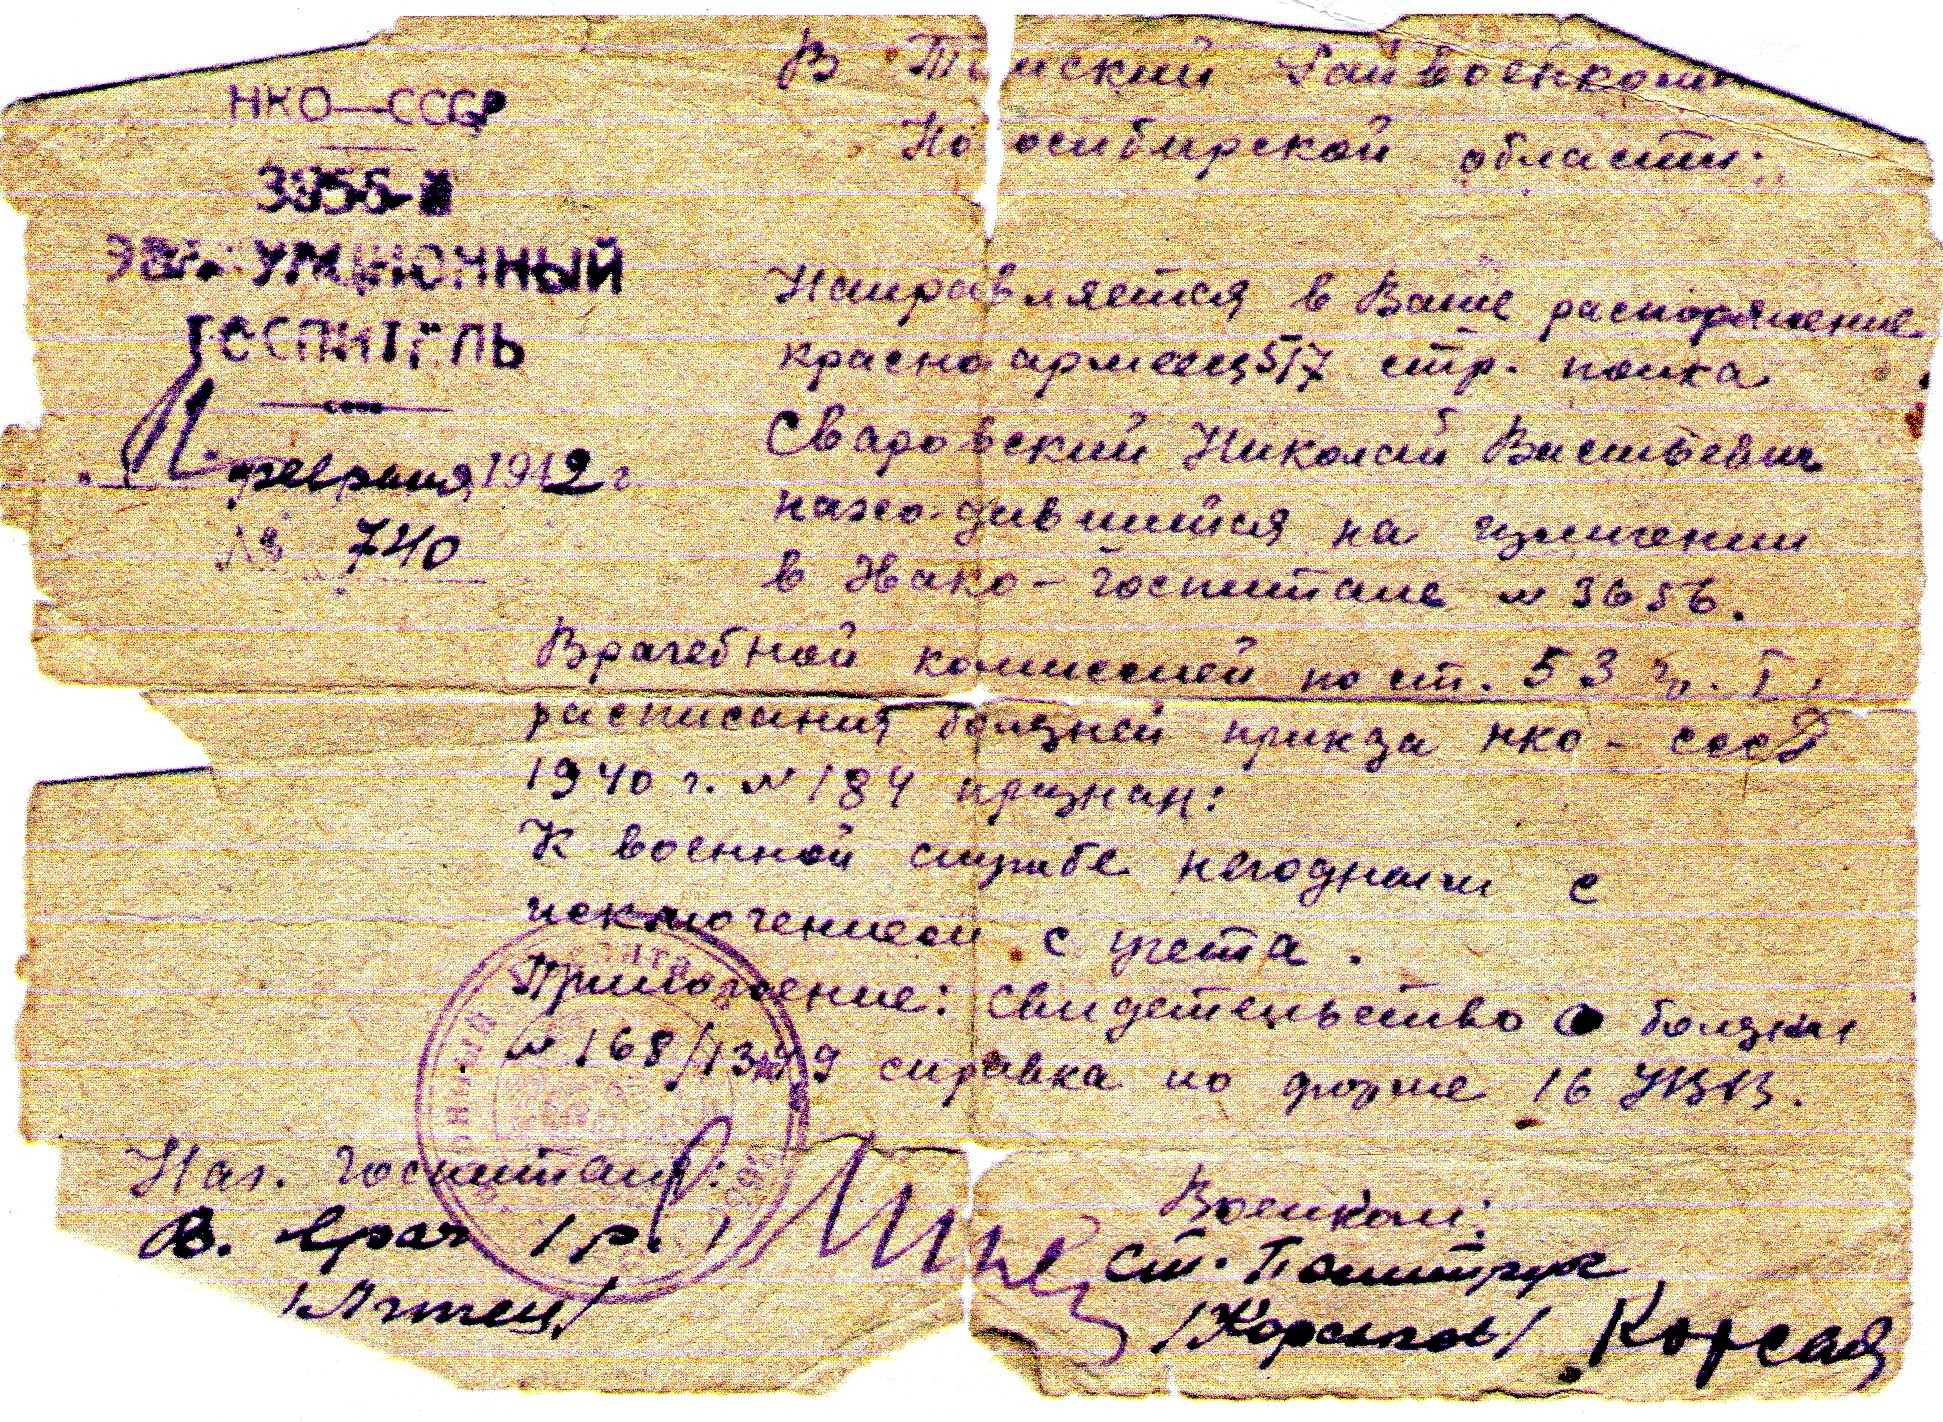 НКО—СССР
ЭВАКУАЦИОННЫЙ
ГОСПИТЕЛЬ
11. февраля 1942 г
№ 740
В Томский Райвоенком
Новосибирской области:
Направляется в Ваше распоряжение
красноармеец 517 стр. полка
Свадовский Николай Васильевич
находившийся на излечении
в Эвако-госпитале № 3656.
Врачебной комиссией по ст. 53 гр. I,
расписания болезней приказа НКО - СССР
1940 г. № 184 признан:
К военной службе негодным с
исключением с учета.
Приложение: Свидетельство о болезни
№ 168/13 справка по форме 16 УВВ.
Нач. госпиталя:
В. врач 1 р.
Военком:
Ст. Политрук